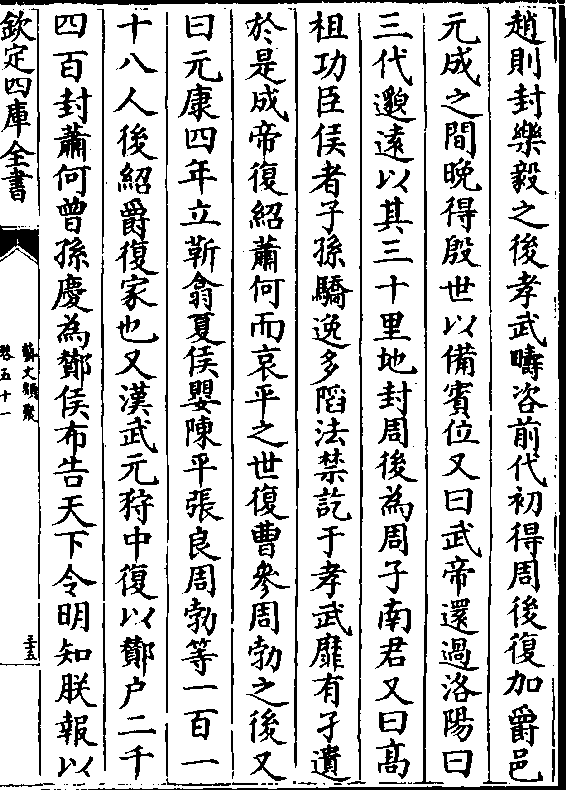 趙則封樂毅之後孝武疇咨前代初得周後復加爵邑
元成之間晚得殷世以備賓位又曰武帝還過洛陽曰
三代邈遠以其三十里地封周後為周子南君又曰高
祖功臣侯者子孫驕逸多䧟法禁訖于孝武靡有孑遺
於是成帝復紹蕭何而哀平之世復曹參周勃之後又
曰元康四年立靳翕夏侯嬰陳平張良周勃等一百一
十八人後紹爵復家也又漢武元狩中復以酇户二千
四百封蕭何曾孫慶為酇侯布告天下令明知朕報以
欽定四庫全書
藝文類聚
卷五十一
三五